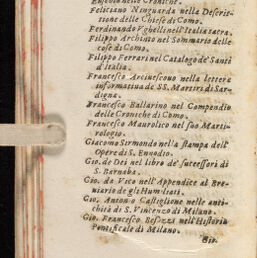 Eusebio nelle Croniche.
Feliciano Ninguarda nella Descrit-
tione delle Chiese di Como.
Ferdinando Vghelli nell'Italia sacra.
Filippo Archinto nel Sommario delle
cose di Como.
Filippo Ferrari nel Catalogo de' Santi
d'Italia.
Francesco Arciuescouo nella lettera
informatiua de SS. Martiri di Sar-
digna.
Francesco Ballarino nel Compendio
delle Croniche di Como.
Francesco Maurolico nel suo Marti-
rologio.
Giacomo Sirmondo nella stampa dell'
Opere di S. Ennodio.
Gio. de Dei nel libro de' successori di
S. Barnaba.
Gio. da Vico nell'Appendice al Bre-
uiario de gli Humiliati.
Gio. Antonio Castiglione nelle anti-
chità di S. Vincenzo di Milano.
Gio. Francesco Besozzi nell'Historia
Pontificale di Milano.
Gio.